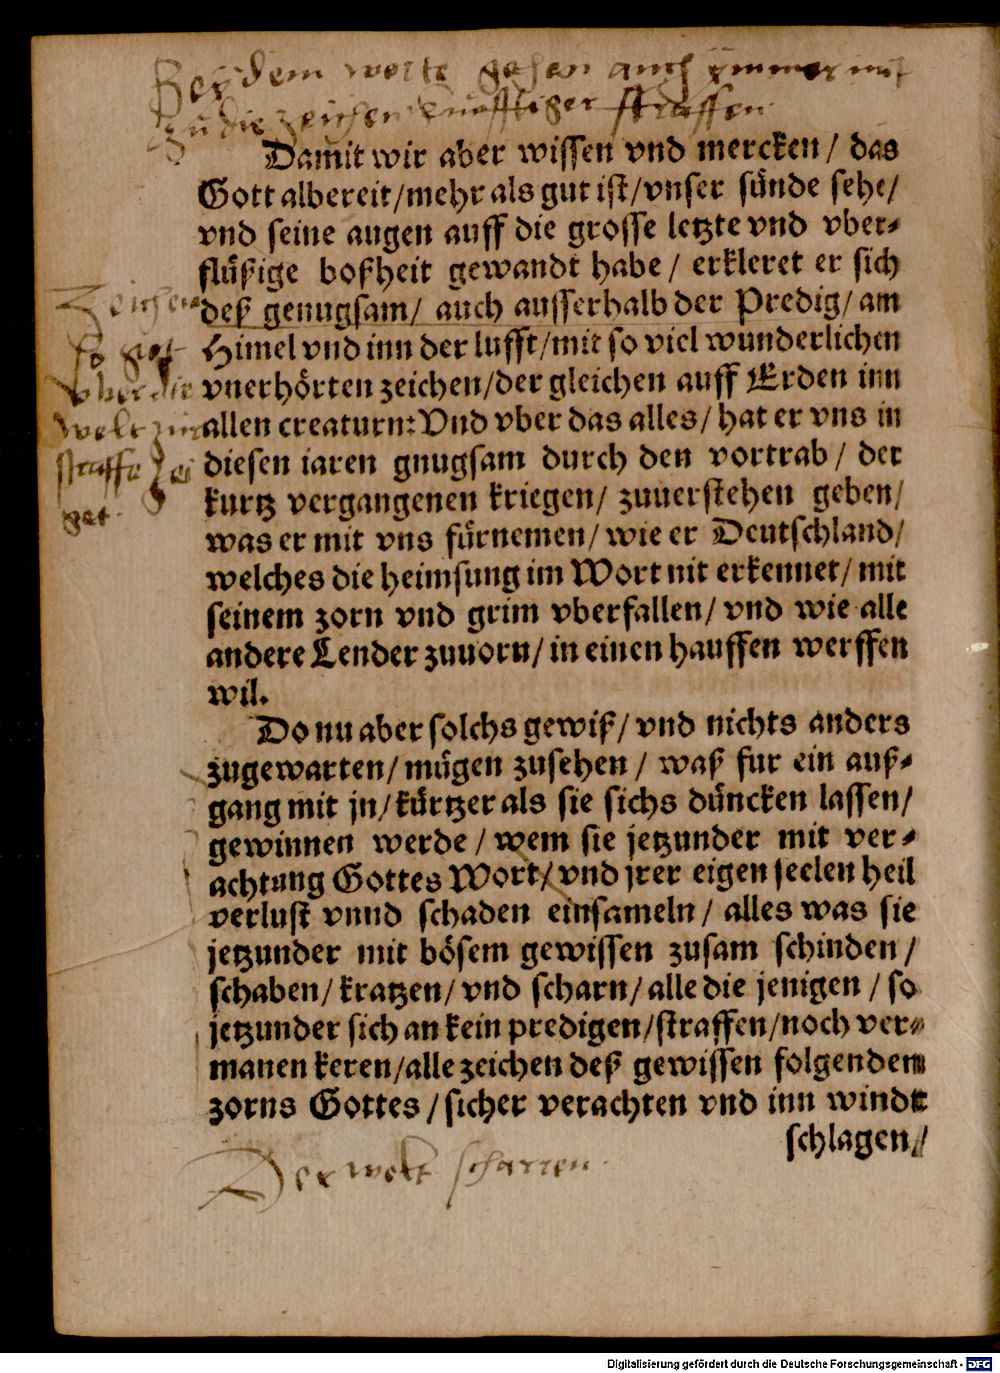 Beÿ dem worte gehen auch ymmer mit
Zu die Zeichen künfftiger straffen
Dam̄it wir aber wissen vnd mercken / das
Gott albereit / mehr als gut ist / vnser sünde sehe /
vnd seine augen auff die grosse letzte vnd vber-
flüßige boßheit gewandt habe / erkleret er sich
deß genugsam / auch ausserhalb der Predig / am
Himel vnd inn der lufft / mit so viel wunderlichen
vnerhörten zeichen / der gleichen auff Erden inn
allen creaturn: Vnd vber das alles / hat er vns in
diesen iaren gnugsam durch den vortrab / der
kurtz vergangenen kriegen / zuuerstehen geben /
was er mit vns fürnemen / wie er Deutschland /
welches die heimsung im Wort nit erkennet / mit
seinem zorn vnd grim vberfallen / vnd wie alle
andere Lender zuuorn / in einen hauffen werffen
wil.
Zeichen
so got
vber die
welt zur
straffe zei
get.
Do nu aber solchs gewiß / vnd nichts anders
zugewarten / mügen zusehen / waß fur ein auß-
gang mit jn / kürtzer als sie sichs düncken lassen /
gewinnen werde / wem sie jetzunder mit ver-
achtung Gottes Wort / vnd jrer eigen seelen heil
verlust vnnd schaden einsameln / alles was sie
jetzunder mit bösem gewissen zusam schinden /
schaben / kratzen / vnd scharn / alle die jenigen / so
jetzunder sich an kein predigen / straffen / noch ver-
manen keren / alle zeichen deß gewissen folgendem
zorns Gottes / sicher verachten vnd inn windt
schlagen /
Der welt scharren.
Digitalisierung gefördert durch die Deutsche Forschungsgemeinschaft - DFG